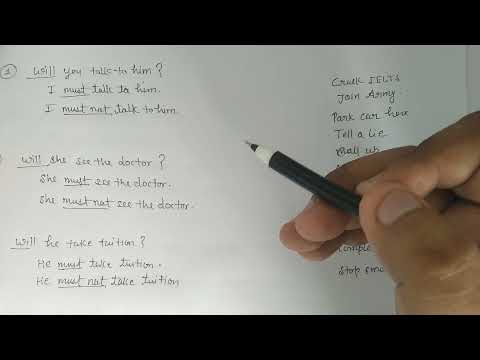 1 Will you talk to him?
I must talk to him.
I must not, talk to him.
Will she see the doctor?
She must see the doctor.
She must not see the doctor.
Will he take tuition?
He must take tuition.
He must not, take tuition
Crack IELTS
Join Army.
Park car here
Tell a lie
up
Stop